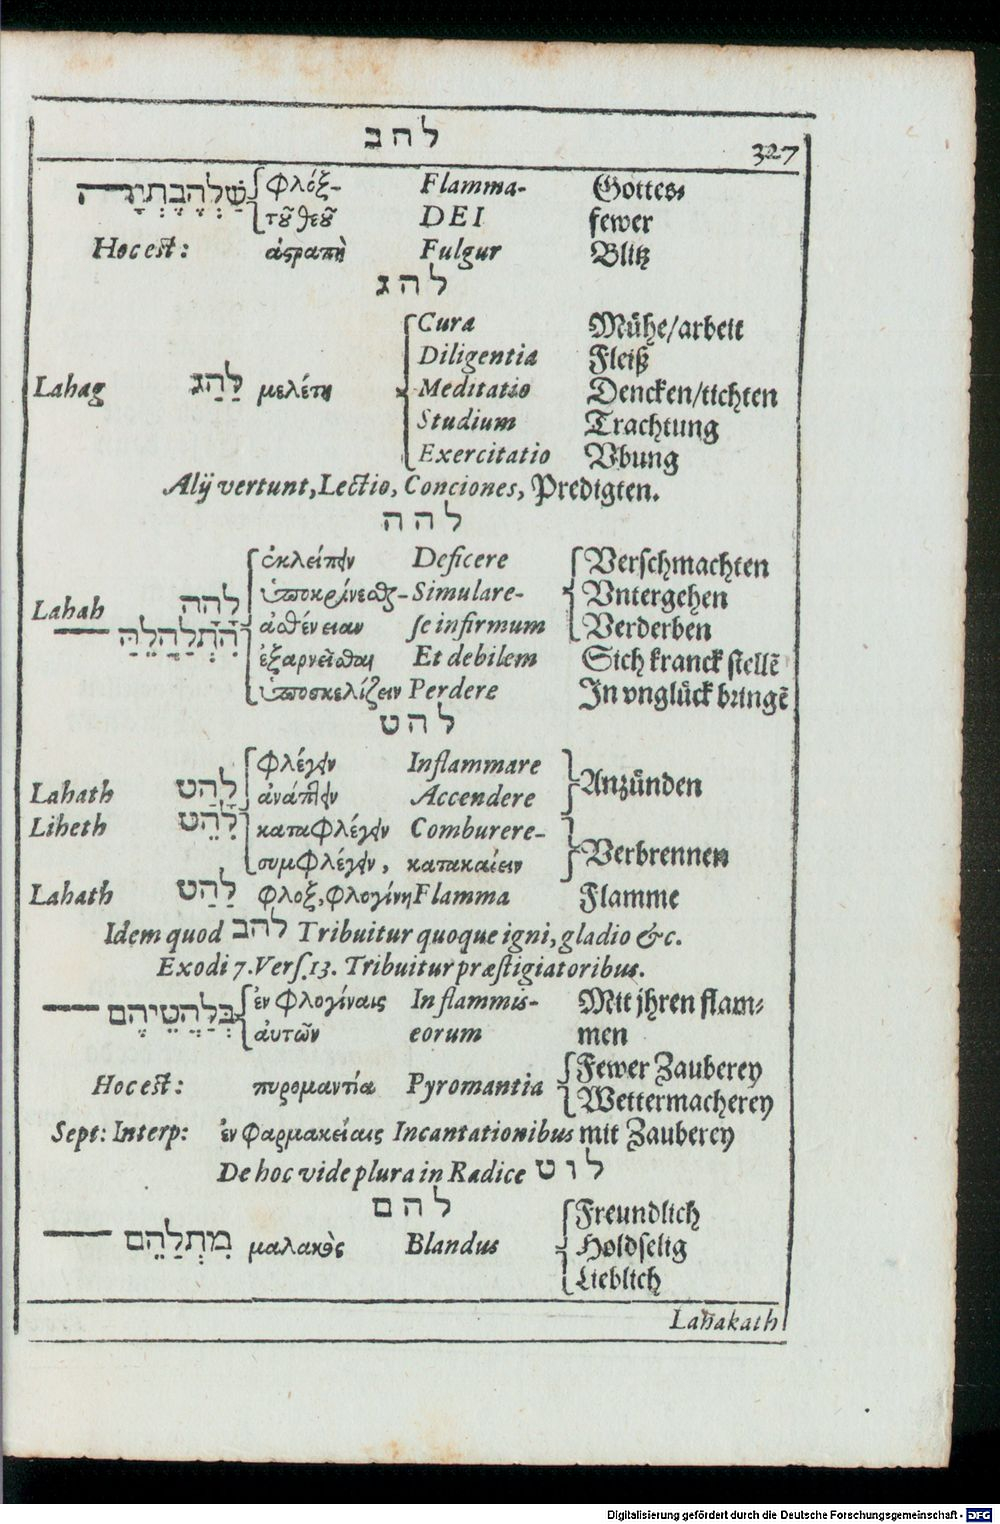 להב
327
שַׁלְהֶבֶתְיָה φλόξ- Flamma- Gottes⸗
τοῦ θεοῦ DEI fewer
Hoc est: ἀϛραπὴ Fulgur Blitz
להג
Cura Mühe/arbeit
Diligentia Fleiß
Lahag לַהַג μελέτη Meditatio Dencken/tichten
Studium Trachtung
Exercitatio Vbung
Alij vertunt, Lectio, Conciones, Predigten.
להה
ἐκλείπειν Deficere Verschmachten
ὑποκρίνεσθαι- Simulare- Vntergehen
Lahah לָהָה ἀσθένειαν se infirmum Verderben
—— הִתְלַהְלֵהַּ ἐξαρνεῖσθαι Et debilem Sich kranck stellẽ
ὑποσκελίζειν Perdere In vnglück bringẽ
להט
φλέγειν Inflammare Anzünden
Lahath לָהַט ἀνάπτειν Accendere
Liheth לִהֵט καταφλέγειν Comburere- Verbrennen
συμφλέγειν, κατακαίειν
Lahath לַהַט φλοξ, φλογίνη Flamma Flamme
Idem quod להב Tribuitur quoque igni, gladio &c.
Exodi 7. Vers. 13. Tribuitur præstigiatoribus.
—— בְּלַהֲטֵיהֶם ἐν φλογίναις In flammis- Mit jhren flam⸗
ἀυτῶν eorum men
Hoc est: πυρομαντία Pyromantia Fewer Zauberey
Wettermacherey
Sept: Interp: ἐν φαρμακείαις Incantationibus mit Zauberey
De hoc vide plura in Radice לוט
להם
Freundlich
—— מִתְלַהֵם μαλακὸς Blandus Holdselig
Lieblich
Lahakath
Digitalisierung gefördert durch die Deutsche Forschungsgemeinschaft - DFG